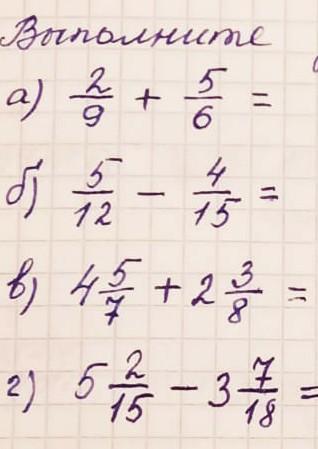 Выполните
а) 2/9 + 5/6 =
б) 5/12 - 4/15 =
в) 4 5/7 + 2 3/8 =
г) 5 2/15 - 3 7/18 =